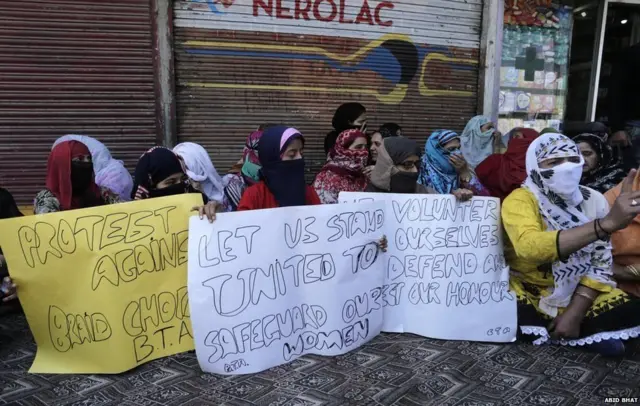 NEROLAC
PROTEST
AGAINS
BRAID CHO
B.T.A
LET US STAND
UNITED TO
SAFEGUARD OUR
WOMEN
B.T.A
VOLUNTEER
OURSELVES
DEFEND A
ECT OUR HONOUR
BTA
ABID BHAT